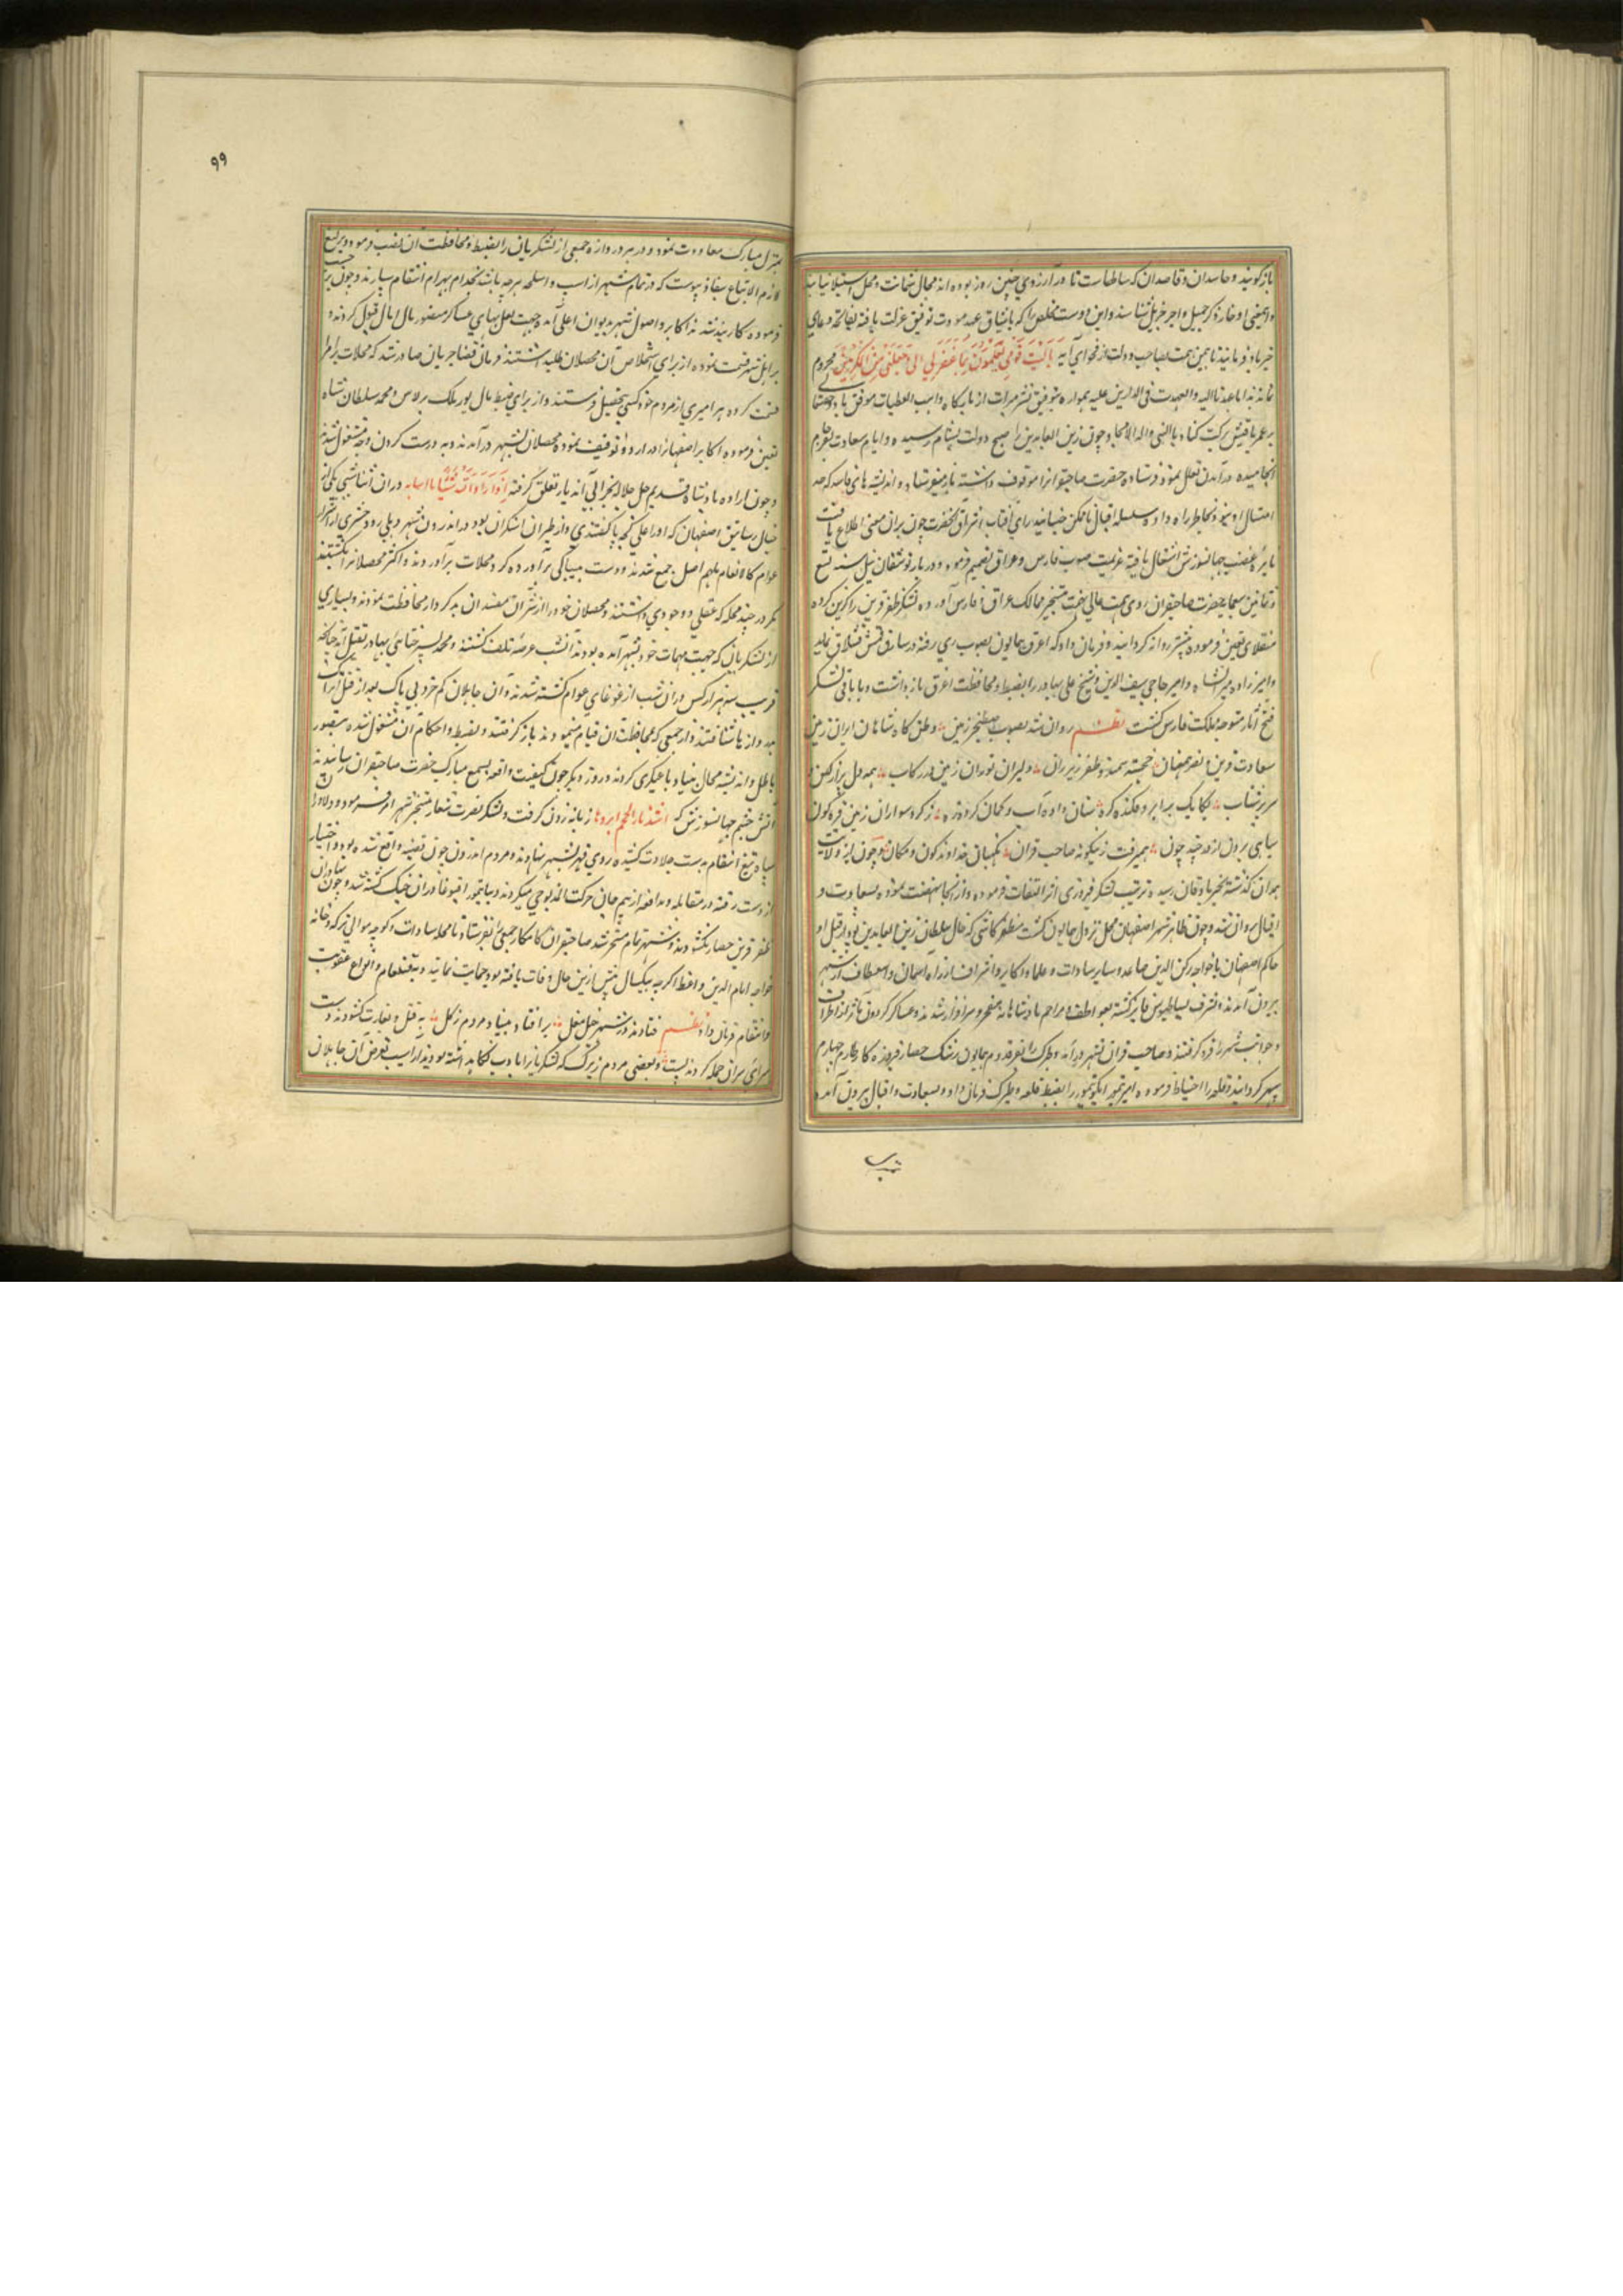 باز گویند و حاسدان و قاصدان که سالهاست تا در آرزوی چنین روز بوده اند مجال شماتت و محل استیلا نیابند
و این معنی را از خایر ذکر جمیل و اجر جزیل شناسند و این دوست مخلص را که با میثاق عهد مودت توفیق عزلت یافته بفاتحه و دعای
خیر یاد فرمایند تا بیمن همت صاحب دولت از فحوای آیه یَا لَیْتَ قَوْمِی یَعْلَمُونَ بِمَا غَفَرَ لِی رَبِّی وَجَعَلَنِی مِنَ الْمُکْرَمِینَ محروم
نماند هذا ما عهدنا الیه والعهدة فی الدارین علیه همواره بتوفیق نشر مبرات از بارگاه واهب العطیات موفق باد
بر عمر باقیش برکت کناد بالنبی و اله الامجاد و چون زین العابدین را صبح دولت بشام رسیده و ایام سعادت بفرجام
انجامیده در آمدن تعلل نمود و فرستاده حضرت صاحبقرانرا موقوف داشته باز نمی فرستاد و اندیشه های فاسد که حد
امثال او نبود بخاطر راه داده سلسله اقبال ناممکن جنبانید رای آفتاب اشراق آنحضرت چون بران معنی اطلاع یافت
نایره غضب جهانسوزش اشتعال یافته عزیمت صوب فارس و عراق تصمیم فرمود و در بار توشقان ئیل سنه تسع
و ثمانین و سبعمایه حضرت صاحبقران روی همت عالی نهمت بتسخیر ممالک عراق و فارس آورده لشکر ظفر قرین را گزین کرده
منقلای تعیین فرموده پیشتر روانه گردانید و فرمان داد که اغرق همایون بصوب ری رفته در سارق قمش قشلاق نماید
و امیرزاده میرانشاه و امیر حاجی سیف الدین و شیخ علی بهادر را بضبط و محافظت اغرق بازداشت و با باقی لشکر
فتح آثار متوجه مملکت فارس گشت نظم روان شد بصوب صطخر زمین وطن گاه شاهان ایران زمین
سعادت قرین و نصر همعنان خجسته سمند و ظفر زیر ران دلیران توران زمین در رکاب همه دل پر از کین و
سر پر شتاب یکایک بر ابرو فکنده گره سنان داده آب و کمان کرده زه ز گرد سواران زمین قیرگون
سپاهی برون از حد چند چون همیرفت زینگونه صاحب قران نگهبان خداوند کون و مکان و چون از ولایت
همدان گذشته بجربادقان رسید ترتیب لشکر فیروزی اثر التفات فرموده و از آنجا نهضت نموده بسعادت و
اقبال روان شد و چون ظاهر شهر اصفهان محل نزول همایون گشت مظفر کاشی که خال سلطان زین العابدین بود از قبل او
حاکم اصفهان با خواجه رکن الدین صاعد و سایر سادات و علما و اکابر و اشراف از راه استیمان و استعطاف از شهر
بیرون آمدند و بشرف بساطبوس فایز گشته بعواطف و مراحم پادشاهانه مفتخر و سرافراز شدند و عساکر گردون مآثر از اطراف
و جوانب شهر را فرو گرفتند و صاحب قران بشهر درآمد و طبرک را بفر قدوم همایون رشک حصار فیروزه کار طارم چهارم
سپهر گردانید و قلعه را احتیاط فرموده امیر تمور ایکوتیمور را بضبط قلعه و طبرک فرمان داد و بسعادت و اقبال بیرون آمده
بمنزل مبارک معاودت نمود و در هر دروازه جمعی از لشکریان را بضبط و محافظت آن نصب فرمود و یرلیغ
لازم الاتباع بنفاذ پیوست که در تمام شهر از اسب و اسلحه هرچه باشد بخدام بهرام انتقام سپارند و چون بر حسب
فرموده کاربند شدند اکابر و اصول شهر بدیوان اعلی آمده جهت نعل بهای عساکر منصور مال امانی قبول کردند و
بر اهل شهر قسمت نموده از برای استخلاص آن محصلان طلب داشتند فرمان قضا جریان صادر شد که محلات بر امرا
قسمت کرده هر امیری از مردم خود کسی بتحصیل فرستند و از برای ضبط مال نور ملک برلاس و محمد سلطان شاه
تعیین فرموده اکابر اصفهانرا در اردو توقیف نمود و محصلان بشهر درآمدند و به درست کردن وجه مشغول شدند
و چون اراده پادشاه قدیم جل جلاله بخرابی آن دیار تعلق گرفته اذا اراد الله شیئا هیا اسبابه در ان اثنا شبی یکی از
جبال رساتیق اصفهان که او را علی کجه پا گفتندی و از طیران آهنگران بود در اندرون شهر دهلی زد و حشری از اشرار
عوام کالانعام بل هم اضل جمع شدند و دست بیباکی برآورده گرد محلات برآمدند و اکثر محصلانرا بکشتند
مگر در چند محله که عقلی و وجودی داشتند و محصلان خود را از شر آن مفسدان بد کردار محافظت نمودند و بسیاری
از لشکریان که جهت مهمات خود بشهر آمده بودند آنشب عرضه تلف گشتند و محمد پسر ختای بهادر بقتل آمد چنانکه
قریب سه هزار کس در ان شب از غوغای عوام کشته شدند و آن جاهلان کم خرد بی باک بعد از قتل اتراک
بدروازها شتافتند و از جمعی که بمحافظت آن قیام مینمودند باز گرفتند و بضبط و احکام آن مشغول شده بتصور
باطل و اندیشه محال بنیاد یاغیگری کردند و روز دیگر چون کیفیت واقعه بسمع مبارک حضرت صاحبقران رسانیدند
آتش خشم جهانسوزش که اشد نارا لجحیم ابردها زبانه زدن گرفت و لشکر نصرت شعار بتسخیر شهر امر فرمود و دلاوران
سپاه تیغ انتقام بدست جلادت کشیده روی قهر بشهر نهادند و مردم اندرون چون قضیه واقع شده بود و اختیار
از دست رفته در مقابله و مدافعه از بیم جان حرکت المذبوحی میکردند و بیان تیمور اقبوغا در ان جنگ کشته شد و چون بهادران
ظفر قرین حصار بگشودند و شهر تمام مسخر شد صاحبقران کامکار جمعی را بفرستاد تا محله سادات و کوچه موالی ترکه و خانه
خواجه امام الدین واعظ اگرچه بیکسال پیش ازین حال وفات یافته بود حمایت نمایند و بقتل عام و انواع عقوبت
و انتقام فرمان داد نظم فتادند در شهر خیل مغل بر افتاد بنیاد مردم ز کل به قتل و بغارت گشودند دست
سرای سران جمله کردند پست و بعضی مردم زیرک که لشکریانرا بادب نگاه داشته بودند از آسیب تعرض آن جاهلان
۹۹